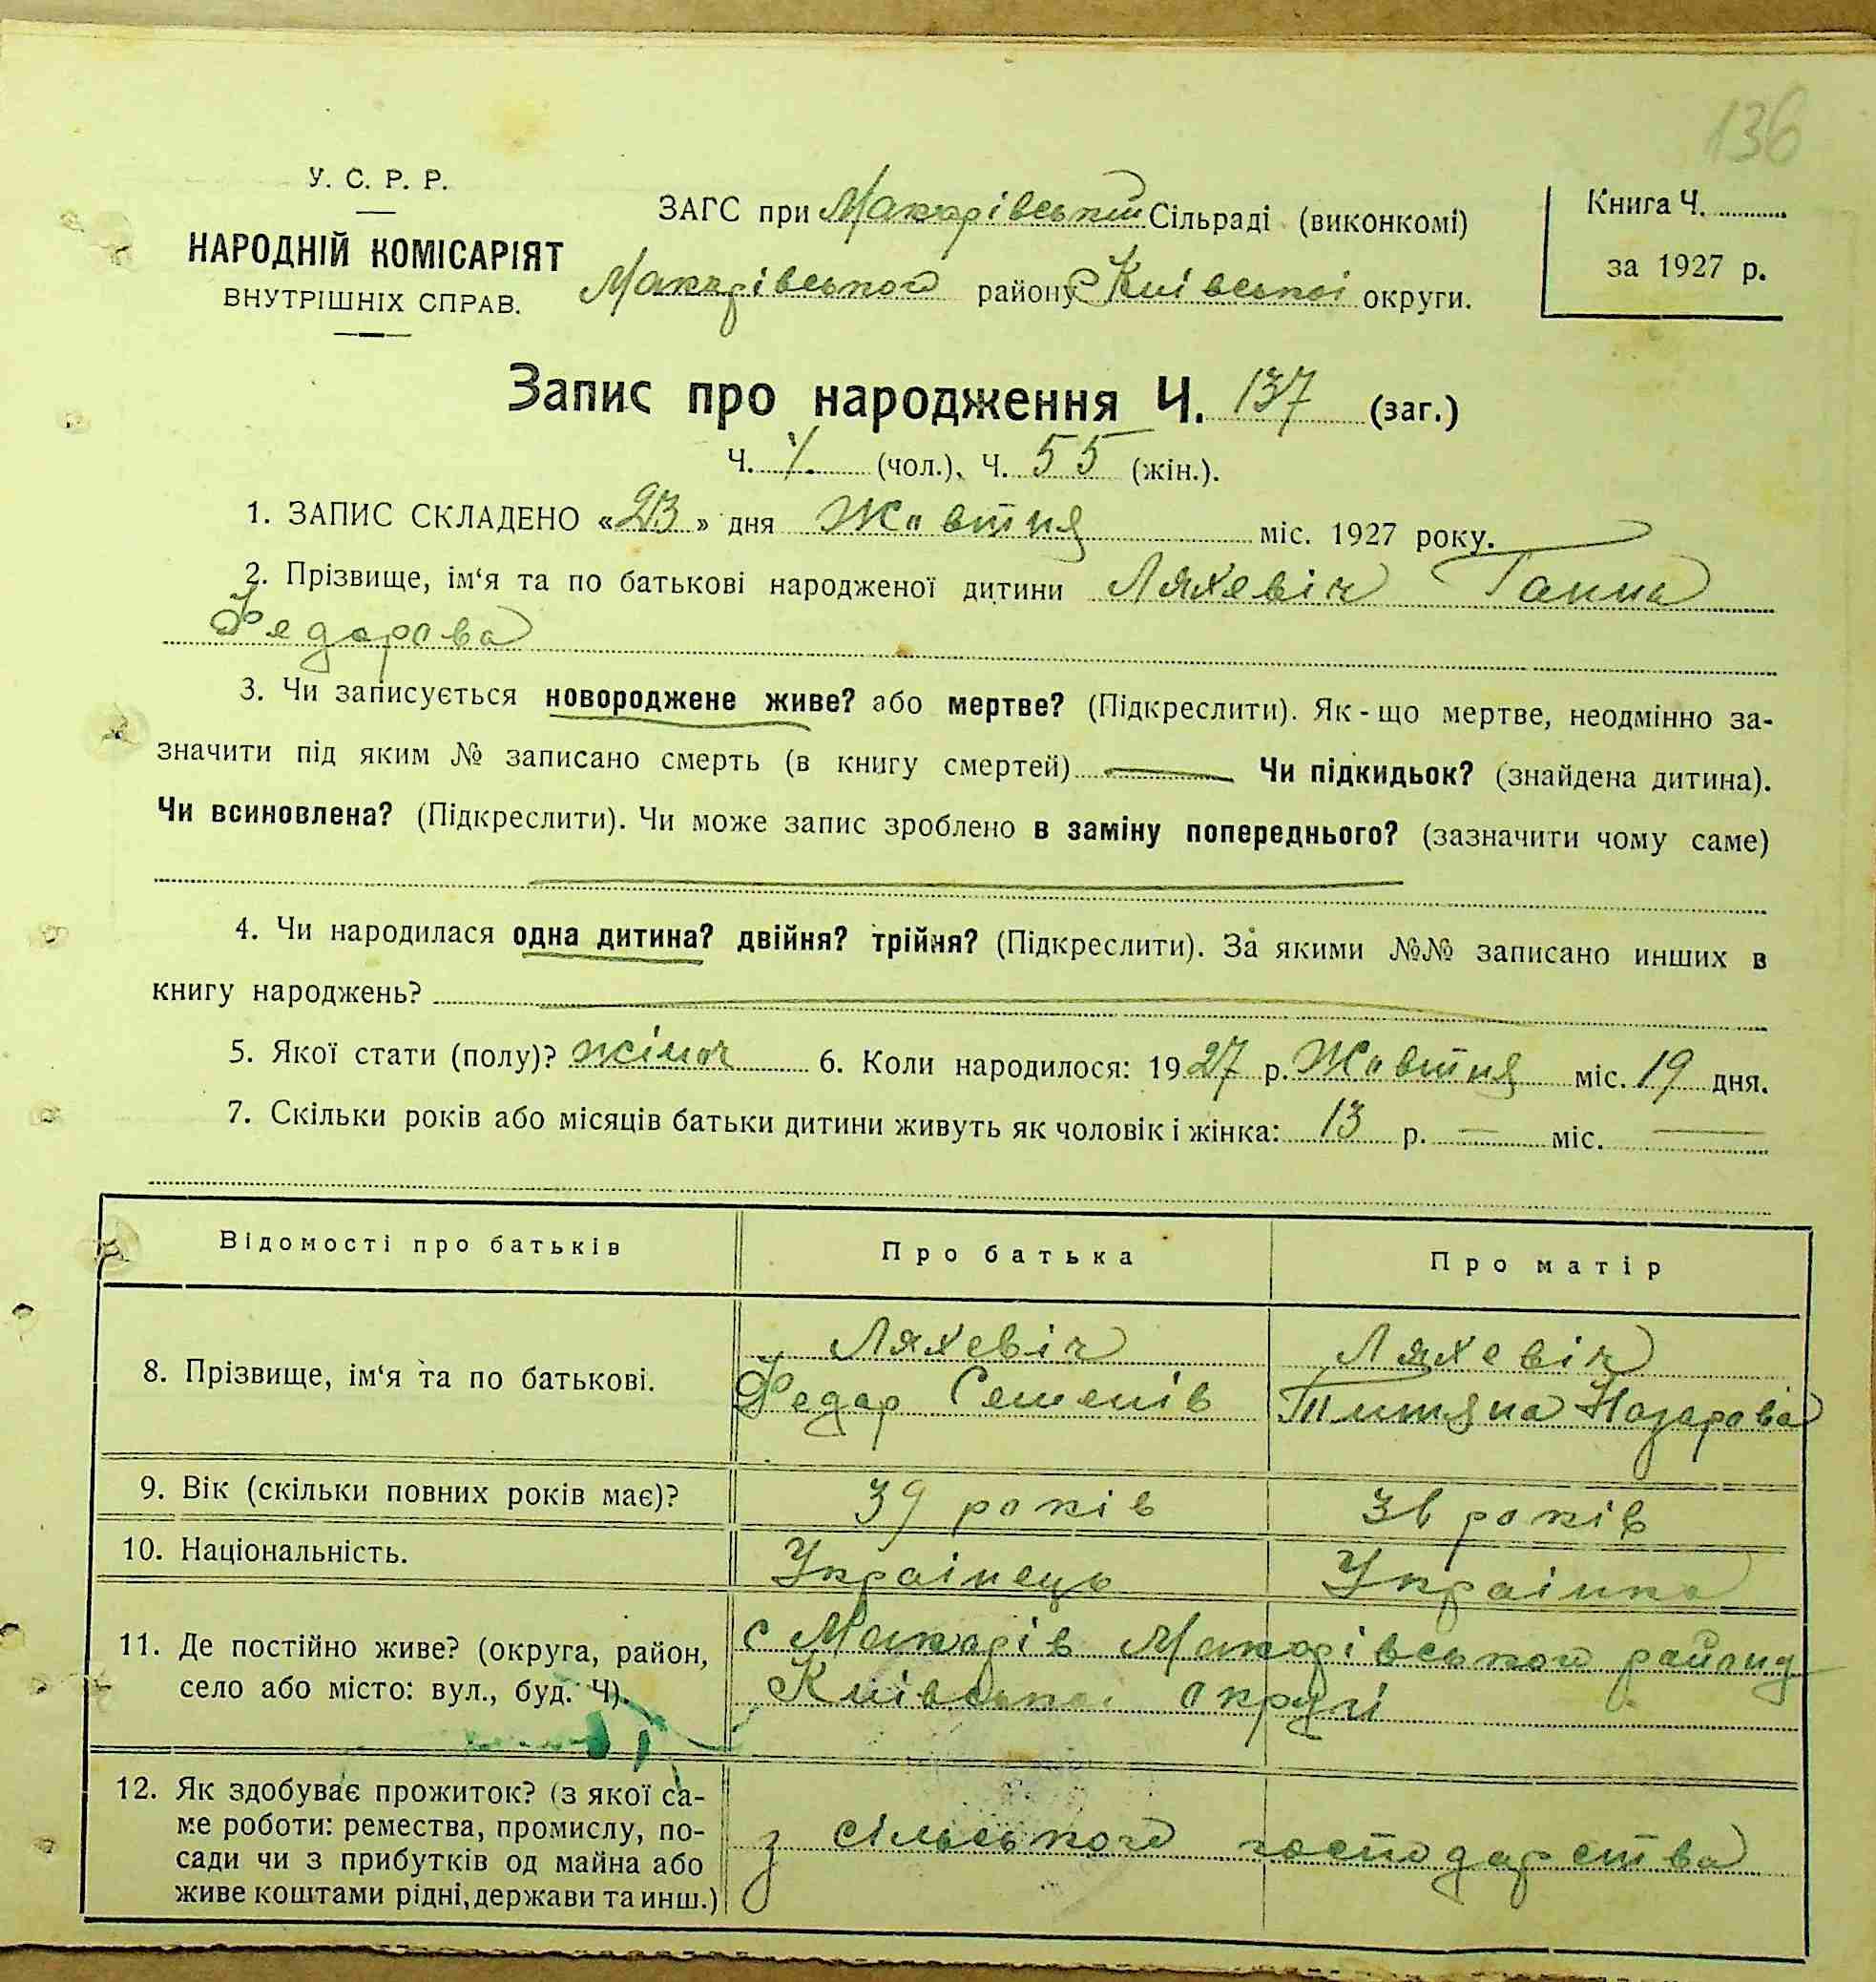 136
У. С. Р. Р.
НАРОДНІЙ КОМІСАРІЯТ
ВНУТРІШНІХ СПРАВ.
ЗАГС при Макарівській Сільраді (виконкомі)
Макарівського району Київської округи.
Книга Ч.
за 1927 р.
Запис про народження Ч. 137 (заг.)
Ч. (чол.), Ч. 55 (жін.).
1. ЗАПИС СКЛАДЕНО «23» дня Жовтня міс. 1927 року.
2. Прізвище, ім‘я та по батькові народженої дитини Ляхевіч Ганна
Федорова
3. Чи записується новороджене живе? або мертве? (Підкреслити). Як-що мертве, неодмінно за-
значити під яким № записано смерть (в книгу смертей) Чи підкидьок? (знайдена дитина).
Чи всиновлена? (Підкреслити). Чи може запис зроблено в заміну попереднього? (зазначити чому саме)
4. Чи народилася одна дитина? двійня? трійня? (Підкреслити). За якими №№ записано инших в
книгу народжень?
5. Якої стати (полу)? жіноч 6. Коли народилося: 1927 р. Жовтня міс. 19 дня.
7. Скільки років або місяців батьки дитини живуть як чоловік і жінка: 13 р. — міс. —
Відомості про батьків Про батька Про матір
8. Прізвище, ім‘я та по батькові.
Ляхевіч
Федор Семенів
Ляхевіч
Титяна Назарова
9. Вік (скільки повних років має)? 39 років років
10. Національність. Украінець Украінка
11. Де постійно живе? (округа, район,
село або місто: вул., буд. Ч).
с Макарів Макарівського району
Київської округі
12. Як здобуває прожиток? (з якої са-
ме роботи: ремества, промислу, по-
сади чи з прибутків од майна або
живе коштами рідні, держави та инш.)
з сільського господарства